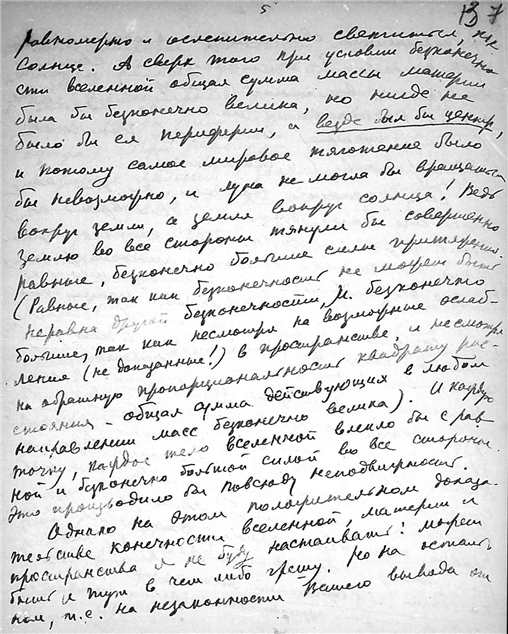 5
137
равномерно и ослепительно светиться, как
солнце. А сверх того при условии безконечно
сти вселенной общая сумма массы материи
была бы безконечно велика, но нигде не
было бы ея периферии, а везде был бы центр,
и потому самое мировое тяготение было
бы невозможно, и луна не могла бы вращаться
вокруг земли, а земля вокруг солнца! Ведь
землю во все стороны тянули бы совершенно
равные, безконечно большие силы притяжения.
(Равные, так как безконечность не может быть
неравна другой безконечности, и безконечно
большие, так как несмотря на возможные ослаб-
ление (не доказанные!) в пространстве, и несмотря
на обратную пропорциональность квадрату рас-
стояния - общая сумма действующих в любом
направлении масс безконечно велика). И каждую
точку, каждое тело вселенной влекло бы с рав
ной и безконечно большой силой во все стороны.
Это производило бы повсюду неподвижность.
Однако на этом положительном доказа-
тельстве конечности вселенной, материи и
пространства я не буду настаивать: может
быть и тут в чем либо грешу. Но на осталь
ном, т.е. на незаконности Вашего вывода от